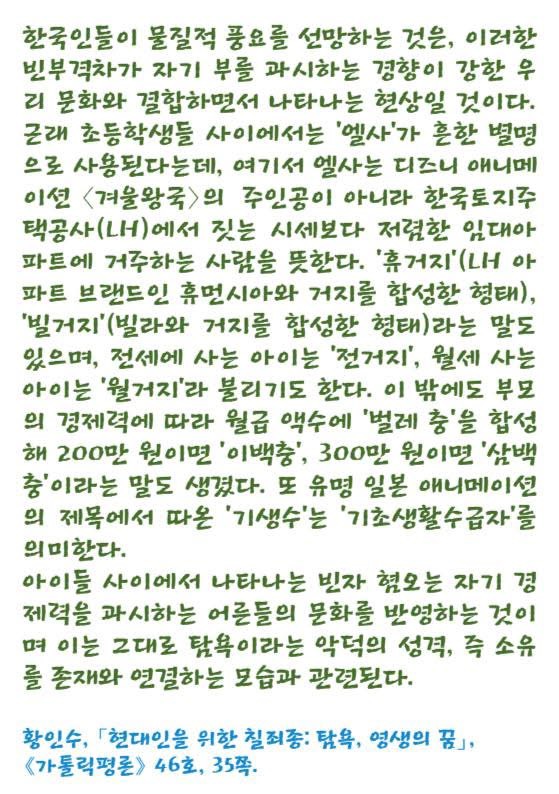 한국인들이 물질적 풍요를 선망하는 것은, 이러한
빈부격차가 자기 부를 과시하는 경향이 강한 우
리 문화와 결합하면서 나타나는 현상일 것이다.
근래 초등학생들 사이에서는 '엘사'가 흔한 별명
으로 사용된다는데, 여기서 엘사는 디즈니 애니메
이션 〈겨울왕국〉의 주인공이 아니라 한국토지주
택공사(LH)에서 짓는 시세보다 저렴한 임대아
파트에 거주하는 사람을 뜻한다. '휴거지'(LH 아
파트 브랜드인 휴먼시아와 거지를 합성한 형태),
'빌거지'(빌라와 거지를 합성한 형태)라는 말도
있으며, 전세에 사는 아이는 '전거지', 월세 사는
아이는 '월거지'라 불리기도 한다. 이 밖에도 부모
의 경제력에 따라 월급 액수에 '벌레 충'을 합성
해 200만 원이면 '이백충', 300만 원이면 '삼백
충'이라는 말도 생겼다. 또 유명 일본 애니메이션
의 제목에서 따온 '기생수'는 '기초생활수급자'를
의미한다.
아이들 사이에서 나타나는 빈자 혐오는 자기 경
제력을 과시하는 어른들의 문화를 반영하는 것이
며 이는 그대로 탐욕이라는 악덕의 성격, 즉 소유
를 존재와 연결하는 모습과 관련된다.
황인수, 「현대인을 위한 칠죄종: 탐욕, 영생의 꿈」,
《가톨릭평론》 46호, 35쪽.